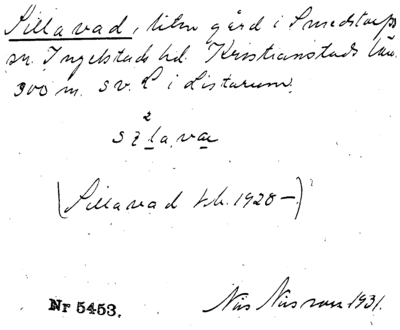 Sillavad, liten gård i Smedstorps
sn. Ingelstads hd. Kristianstads län.
300 m. sv. L i Listarum.
(Sillavad kb. 1928—)
Nr 5453. Nils Nilsson 1931.